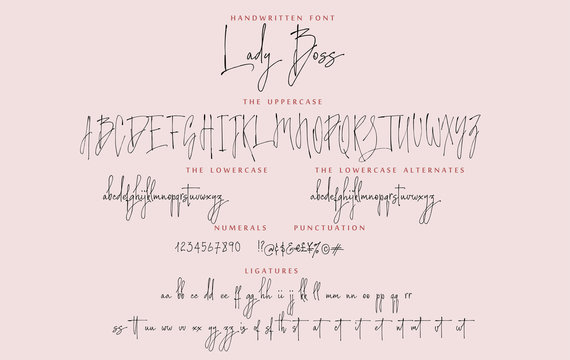 HANDWRITTEN FONT
Lady Boss
THE UPPERCASE
ABCDEFGHIJKLMNOPQRSTUVWXYZ
THE LOWERCASE THE LOWERCASE ALTERNATES
abcdefghijklmnopqrstuvwxyz abcdefghijklmnopqrstuvwxyz
NUMERALS PUNCTUATION
1234567890 !?@¢$€£¥%©#
LIGATURES
aa bb cc dd ee ff gg hh ii jj kk ll mm nn oo pp qq rr
ss tt uu ww vv xx yy zz is of sh st at ct et it ot nt mt vt wt